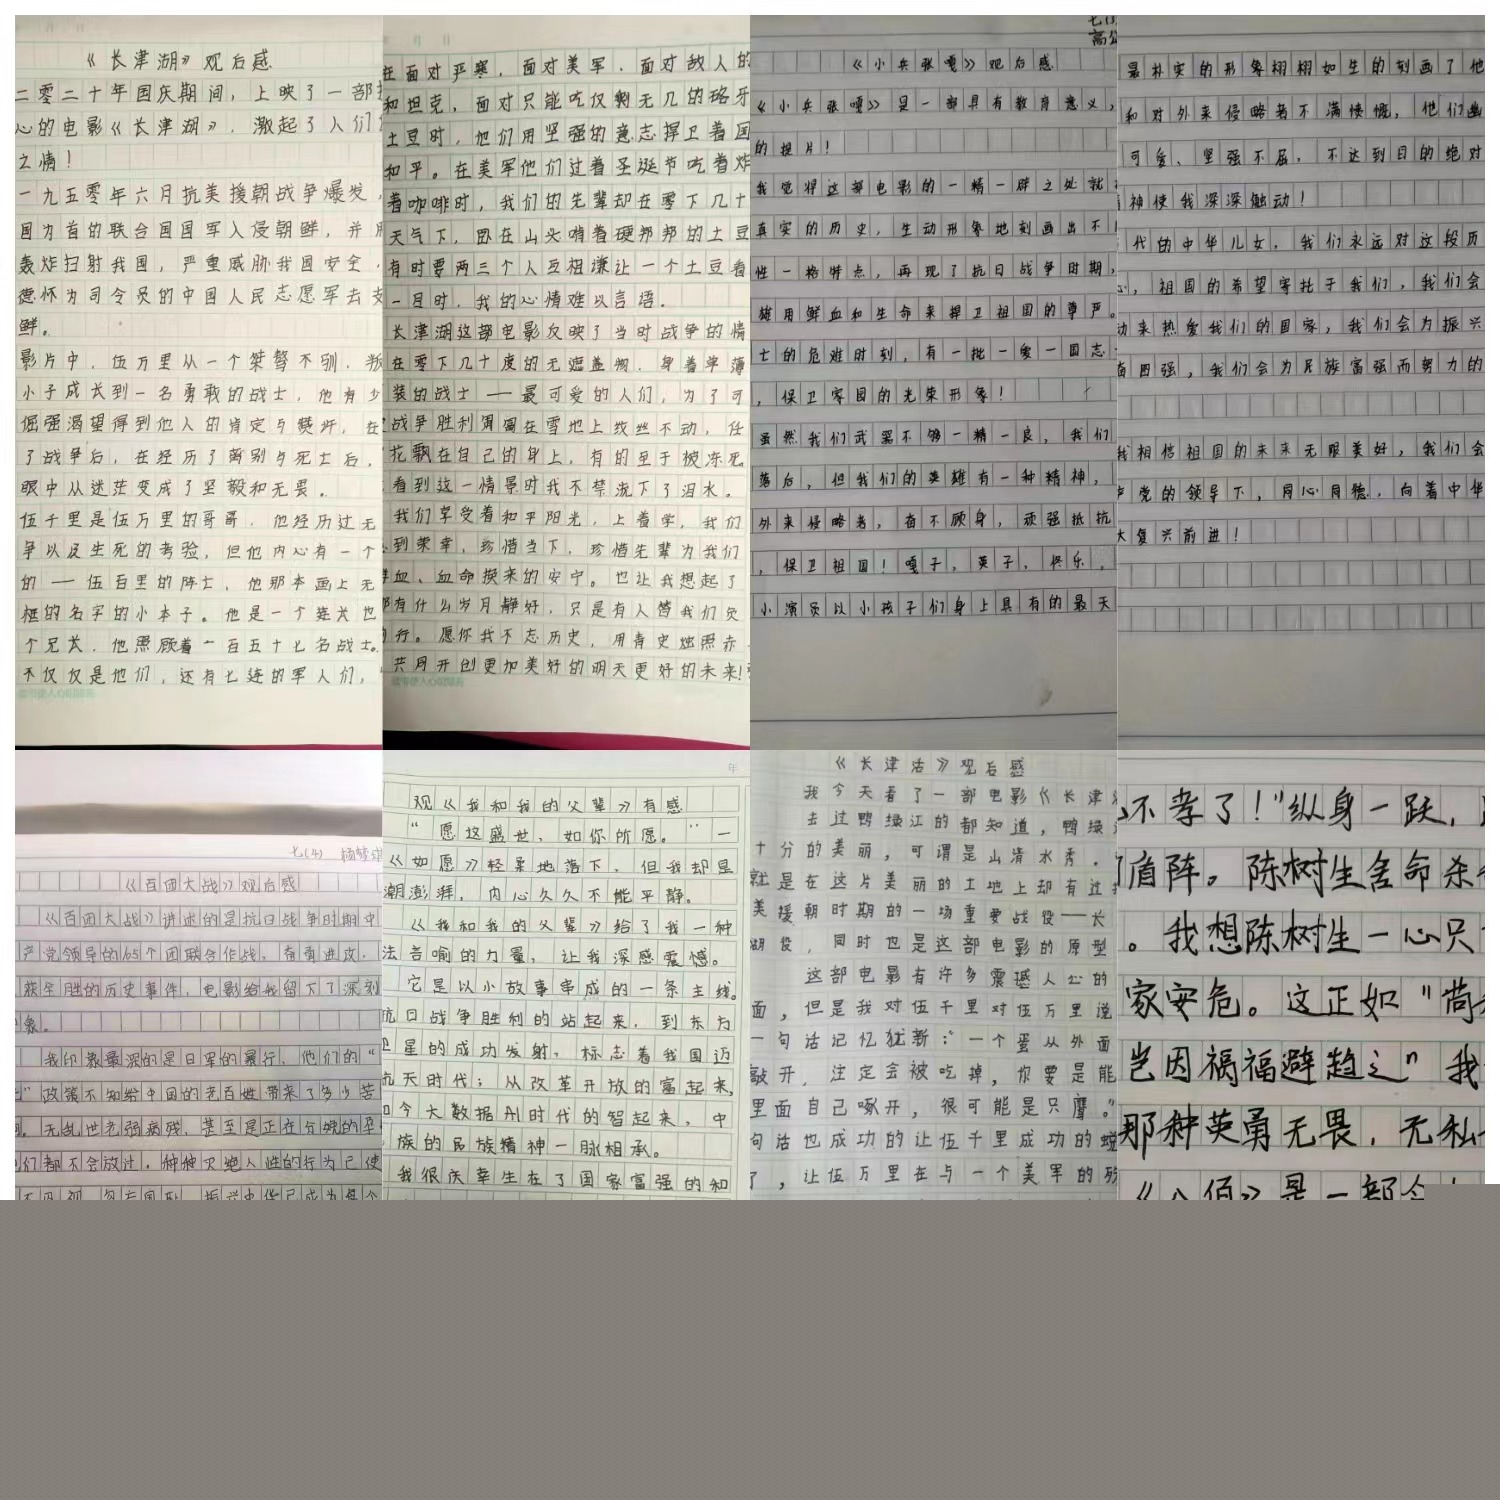 《长津湖》观后感
二零二十年国庆期间，上映了一部
心的电影《长津湖》，激起了人们
之情！
一九五零年六月抗美援朝战争爆发，
国为首的联合国国军入侵朝鲜，并
轰炸扫射我国，严重威胁我国安全，
德怀为司令员的中国人民志愿军去
鲜。
影片中，伍万里从一个桀骜不驯，叛
小子成长到一名勇敢的战士，他有少
倔强渴望得到他人的肯定与赞许，在
了战争后，在经历了离别与死亡后，
眼中从迷茫变成了坚毅和无畏。
伍千里是伍万里的哥哥，他经历过无
争以及生死的考验，但他内心有一个
的——伍百里的阵亡，他那本画上无
框的名字的小本子。他是一个连长也
个兄长，他照顾着一百五十七名战士。
不仅仅是他们，还有七连的军人们，
在面对严寒，面对美军，面对敌人的
和坦克，面对只能吃仅剩无几的硌牙
土豆时，他们用坚强的意志捍卫着国
和平。在美军他们过着圣诞节吃着炸
着咖啡时，我们的先辈却在零下几十
天气下，卧在山头啃着硬邦邦的土豆
有时要两三个人互相谦让一个土豆看
一目时，我的心情难以言语。
长津湖这部电影反映了当时战争的情
在零下几十度的无遮盖物，身着单薄
装的战士——最可爱的人们，为了可
战争胜利匍匐在雪地上纹丝不动，任
花飘在自己的身上，有的至于被冻死
看到这一情景时我不禁流下了泪水。
我们享受着和平阳光，上着学，我们
到荣幸，珍惜当下，珍惜先辈为我们
血、血命换来的安宁。也让我想起了
有什么岁月静好，只是有人替我们负
行。愿你我不忘历史，用青史烛照赤
共同开创更加美好的明天更好的未来！
七
高
《小兵张嘎》观后感
《小兵张嘎》呈一部具有教育意义，
的提片！
我觉得这部电影的一精一辟之处就
真实的历史，生动形象地刻画出不
性一格特点，再现了抗日战争时期，
雄用鲜血和生命来捍卫祖国的尊严。
亡的危难时刻，有一批一爱一国志
，保卫家园的光荣形象！
虽然我们武器不够一精一良，我们
落后，但我们的英雄有一种精神，
外来侵略者，奋不顾身，顽强抵抗
，保卫祖国！嘎子，英子，佟乐，
小演员以小孩子们身上具有的最天
最朴实的形象栩栩如生的刻画了他
和对外来侵略者不满慷慨，他们幽
可爱、坚强不屈，不达到目的绝对
神使我深深触动！
代的中华儿女，我们永远对这段历
心，祖国的希望寄托于我们，我们会
动来热爱我们的国家，我们会为振兴
国强，我们会为民族富强而努力的
我相信祖国的未来无限美好，我们会
产党的领导下，同心同德，向着中华
大复兴前进！
七(4)
《百团大战》观后感
《百团大战》讲述的是抗日战争时期中
产党领导的105个团联合作战，奋勇进攻，
获全胜的历史事件，电影给我留下了深刻
象。
我印象最深的是日军的暴行，他们的“
”政策不知给中国的老百姓带来了多少苦
。无乱世老弱病残，甚至是正在分娩的孕
们都不会放过，种种灭绝人性的行为已使
观《我和我的父辈》有感
“愿这盛世，如你所愿。”一
《如愿》轻柔地落下，但我却是
潮澎湃，内心久久不能平静。
《我和我的父辈》给了我一种
法言喻的力量，让我深感震憾。
它是以小故事串成的一条主线。
抗日战争胜利的站起来，到东方
卫星的成功发射，标志着我国迈
航天时代；从改革开放的富起来，
如今大数据AI时代的智起来，中
族的民族精神一脉相承。
我很庆幸生在了国家富强的和
《长津活》观后感
我今天看了一部电影《长津
去过鸭绿江的都知道，鸭绿
十分的美丽，可谓是山清水秀。
就是在这片美丽的土地上却有过
美援朝时期的一场重要战役——长
湖役，同时也是这部电影的原型
这部电影有许多震撼人心的
面，但是我对伍千里对伍万里说
一句话记忆犹新：“一个蛋从外面
敲开，注定会被吃掉，你要是能
里面自己啄开，很可能是只鹰。”
句话也成功的让伍千里成功的蜕
了，让伍万里在与一个美军的
不孝了！”纵身一跃，
盾阵。陈树生舍命杀
。我想陈树生一心只
家安危。这正如“苟
岂因祸福避趋之”我
那种英勇无畏，无私
《八佰》是一部